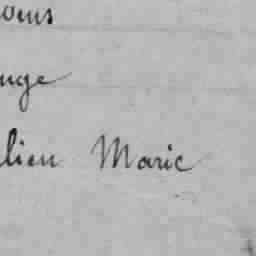 ous
uge
lien Marie